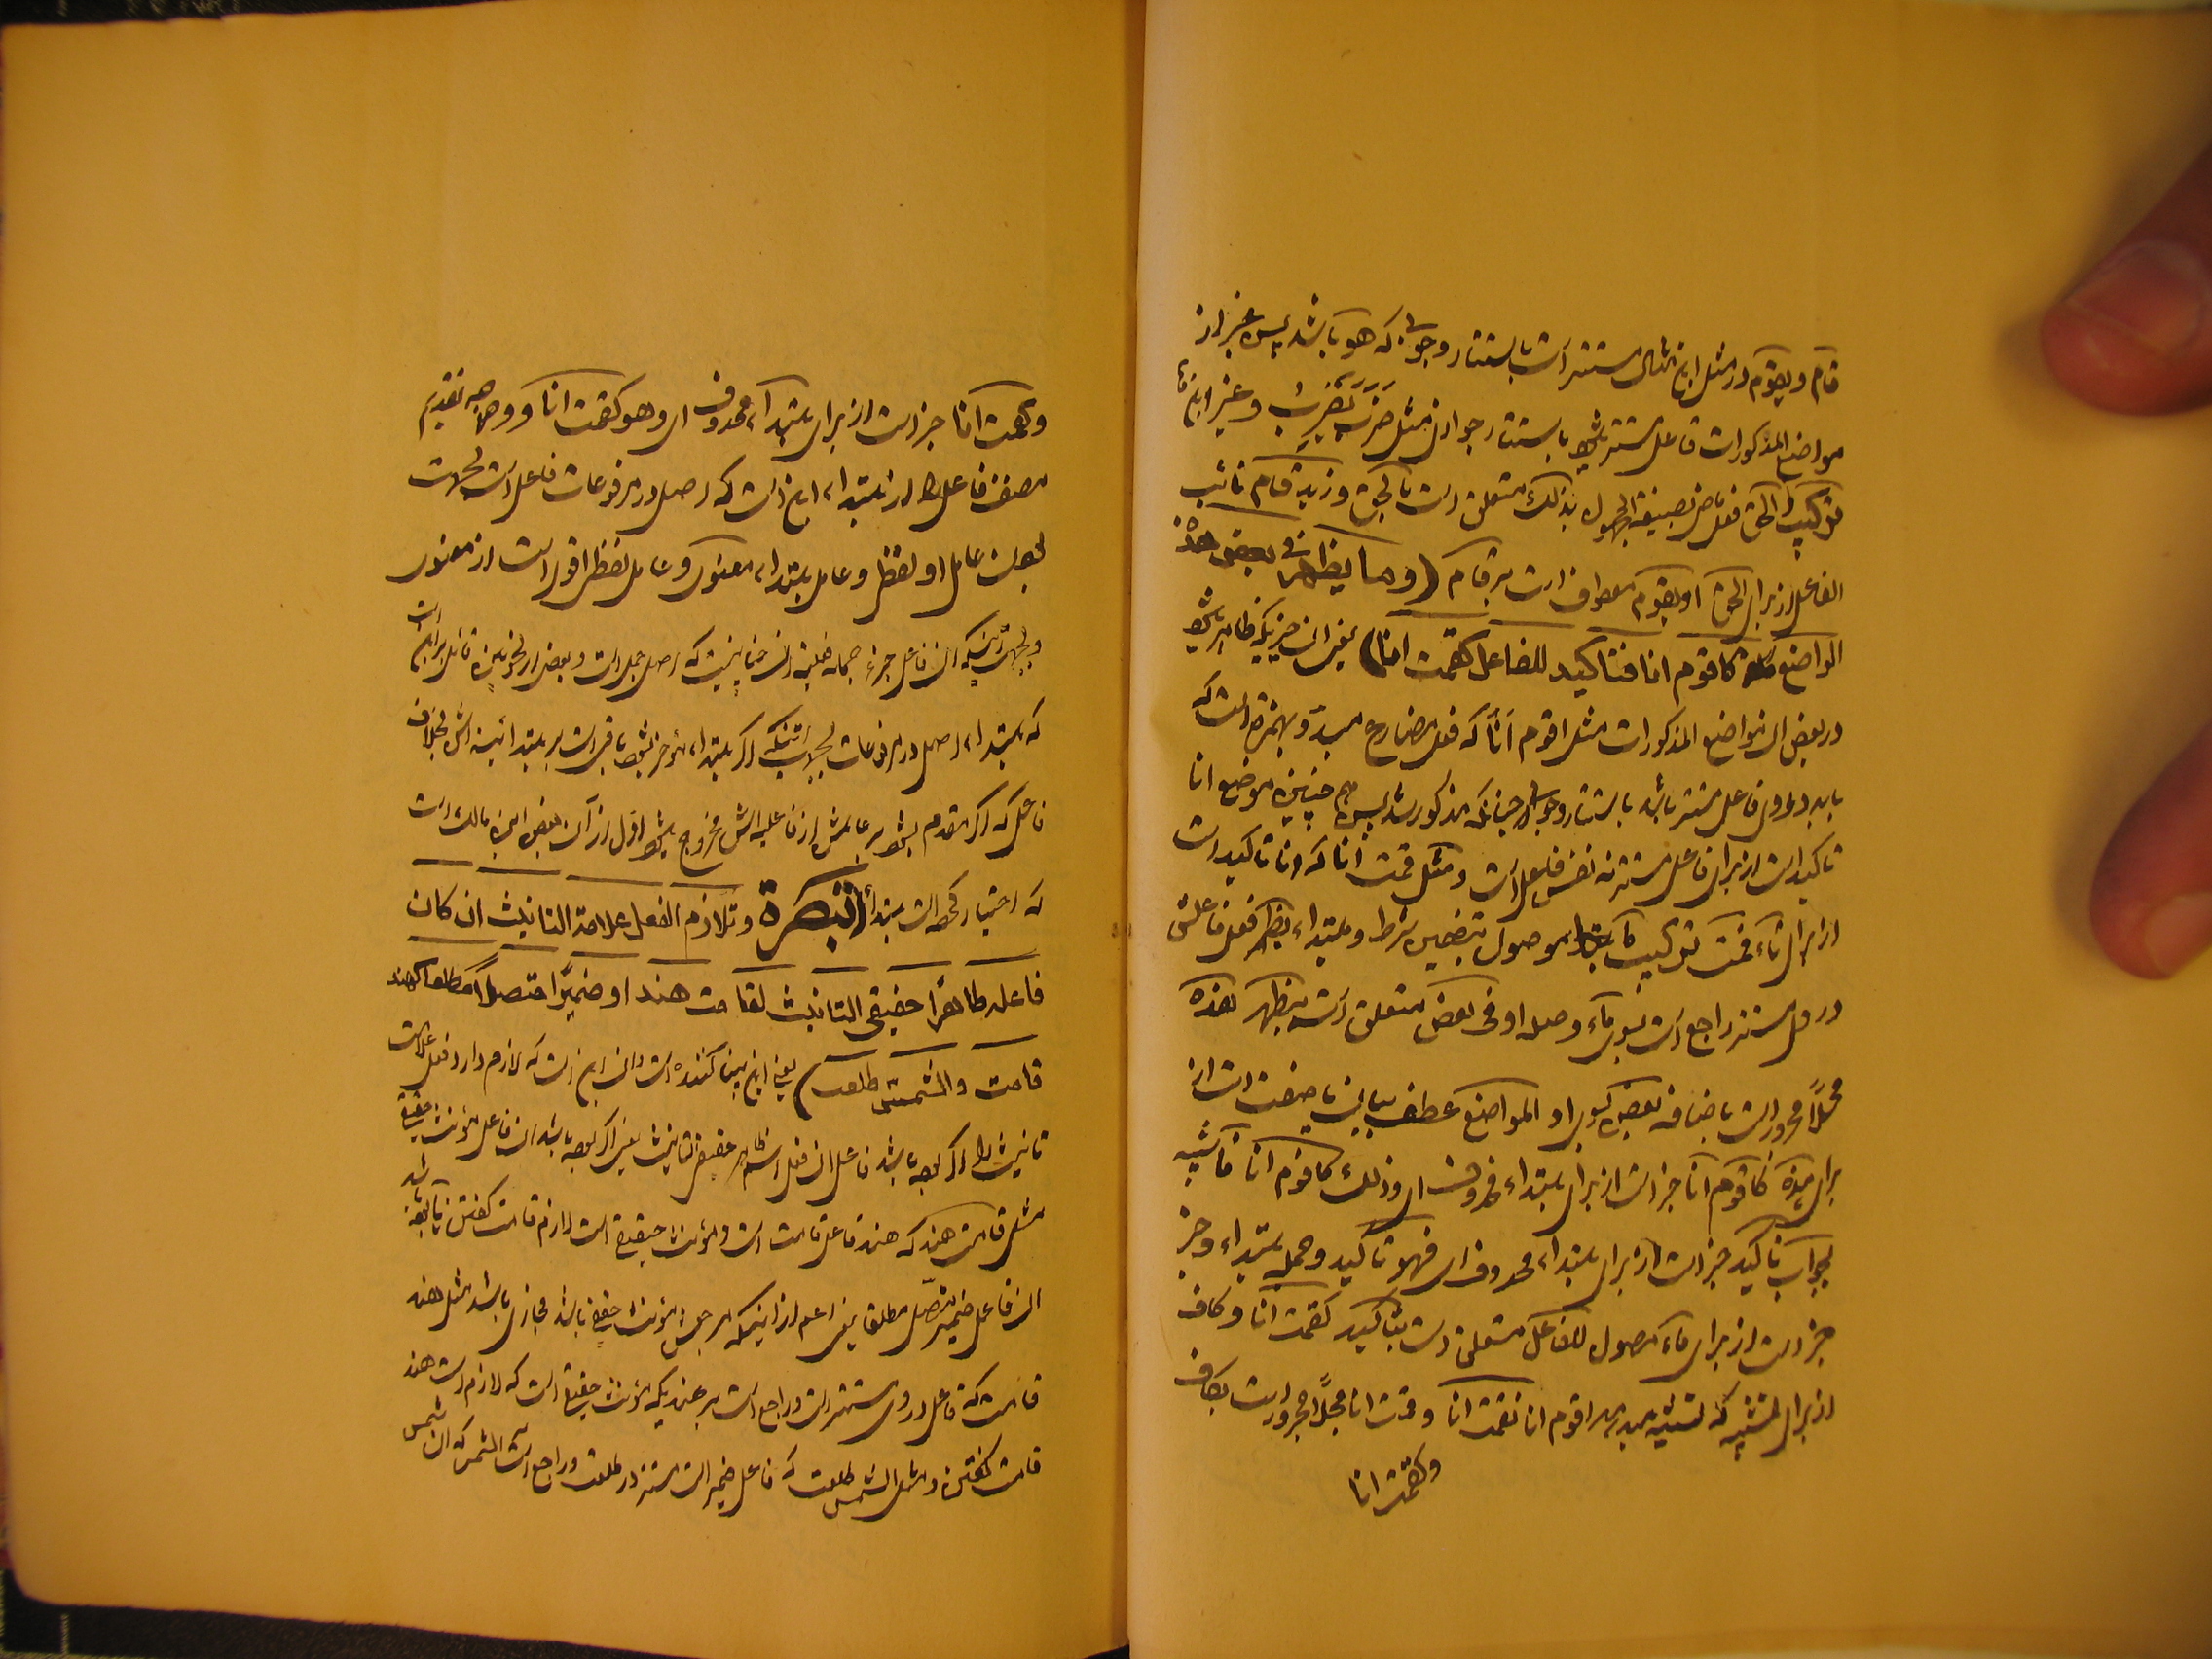 قام و یقوم در مثل این مثال مستتر است باستتار وجوبی که هو باشد پس غیر از
مواضع المذکورات فاعل مستتر میشود باستتار جوازی مثل ضرب یضرب و غیر این‌ها
ترکیب الحق فعل ماض بصیغة المجهول بذلک متعلق است بالحق و زید قام نائب
الفاعل از برای الحق او یقوم معطوف است بر قام (وما یظهر فی بعض هذه
المواضع کاقوم انا فتاکید للفاعل کقمت انا) یعنی آن چیزیکه ظاهر میشود
در بعض آن مواضع المذکورات مثل اقوم انا که فعل مضارع مبدو بهمزه است که
باید در او فاعل مستتر باشد باستتار وجوبی چنانکه مذکور شد پس هم چنین موضع انا
تاکید است از برای فاعل مستتر نه نفس فاعل است و مثل قمت انا که انا تاکید است
از برای تاء قمت ترکیب ما موصول بتضمین شرط و مبتداء یظهر فعل فاعلش
در او مستتر راجع است بسوی ماء وصله او فی بعض متعلق است بیظهر هذه
محلاً مجرور است باضافه بعض بسوی او المواضع عطف بیان یا صفت است از
برای هذه کاقوم انا خبر است از برای مبتداء محذوف ای وذلک کاقوم انا فاء شبیه
بجواب تاکید خبر است از برای مبتداء محذوف ای فهو تاکید و جمله مبتداء و خبر
خبر است از برای ماء موصول للفاعل متعلق است بتاکید کقمت انا و کاف
از برای تشبیه که تشبیه میدهد اقوم انا بقمت انا و قمت انا محلاً مجرور است بکاف
وکقمت انا
وکقمت انا خبر است از برای مبتداء محذوف ای وهو کقمت انا و وجه تقدیم
مصنف فاعل را از مبتداء این است که اصل در مرفوعات فاعل است بجهت
بودن عامل او لفظی و عامل مبتداء معنوی و عامل لفظی اقوی است از معنوی
و بجهت اینکه آن فاعل جزء جمله فعلیه است که اصل جمل است و بعض از نحویین قائل بر این است
که مبتداء اصل در مرفوعات است بجهت اینکه اگر مبتداء مؤخر بشود باقی است بر مبتدائیت اش بخلاف
فاعل که اگر مقدم بشود بر عاملش از فاعلیه اش خروج میشود اول از آن بعض ابن مالک است
که اختیار کرده است مبتدأ را (تبصرة و تلازم الفعل علامة التانیث ان کان
فاعله ظاهراً حقیقی التانیث کقامت هند او ضمیراً متصلاً مطلقا کهند
قامت والشمس طلعت) یعنی این بینا کننده است و آن این است که لازم دارد فعل علامت
تانیث را اگر بوده باشد فاعل آن فعل اسم ظاهر حقیقی التانیث یعنی اگر بوده باشد آن فاعل مؤنث حقیقی
مثل قامت هند که هند فاعل قامت است و مؤنث حقیقی است لازم قامت گفتن یا بوده باشد
آن فاعل ضمیر متصل مطلق یعنی اعم از اینکه مرجعش مؤنث حقیقی باشد یا مجازی باشد مثل هند
قامت که فاعل در او مستتر است و راجع است بر هندیکه مؤنث حقیقی است که لازم است هند
قامت گفتن و مثل الشمس طلعت که فاعل ضمیر است مستتر در طلعت و راجع است الشمس که آن شمس